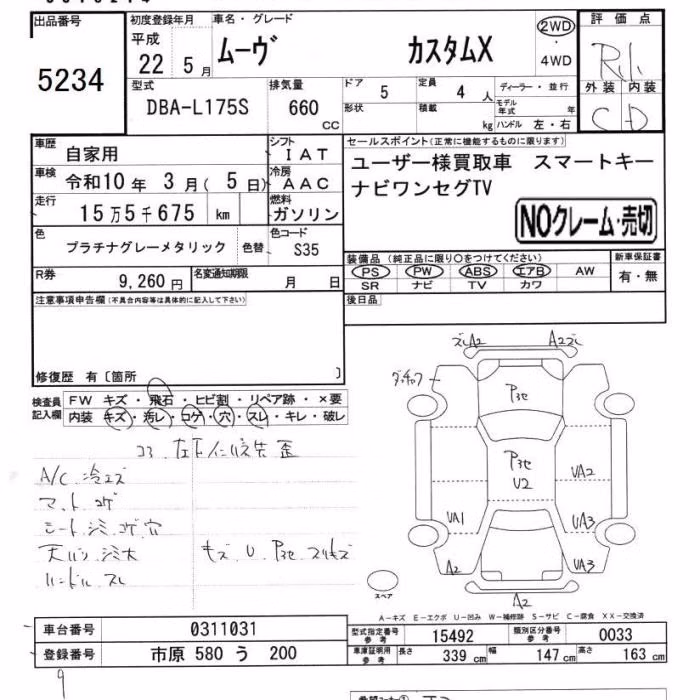 出品番号 5234
初度登録年月 平成 22 5 月
車名・グレード ムーヴ カスタムX
2WD ・ 4WD
評価点
外装 内装
C D
型式 DBA-L175S
排気量 660 CC
ドア 5 定員 4 人
形状 積載 kg
ディーラー・並行
モデル年式 年
ハンドル 左・右
車歴 自家用
シフト IAT
車検 令和10年 3月( 5日)
冷房 AAC
走行 15万5千675 km
燃料 ガソリン
色 プラチナグレーメタリック 色替
色コード S35
R券 9,260 円
名変通知期限 月 日
セールスポイント(正常に機能するものに限ります)
ユーザー様買取車 スマートキー
ナビワンセグTV
NOクレーム・売切
装備品(純正品に限り○をつけてください)
PS PW ABS エアB AW
SR ナビ TV カワ
新車保証書
有・無
後日品
注意事項申告欄(不具合内容等は具体的に記入して下さい)
修復歴 有〔箇所 〕
検査員記入欄
FW キズ・飛石・ヒビ割・リペア跡・×要
内装 キズ・汚レ・コゲ・穴・スレ・キレ・破レ
A/C 冷エズ
マット コゲ
シート シミ コゲ 穴
ハンドル スレ
キズ U
A2 A2
P
P
U2
UA2
UA1
UA3
A2
UA3
A2
スペア
A-キズ E-エクボ U-凹み W-補修跡 S-サビ C-腐食 XX-交換済
車台番号 0311031
登録番号 市原 580 う 200
型式指定番号参考 15492
類別区分番号参考 0033
車庫証明用参考 長さ 339 cm 幅 147 cm 高さ 163 cm